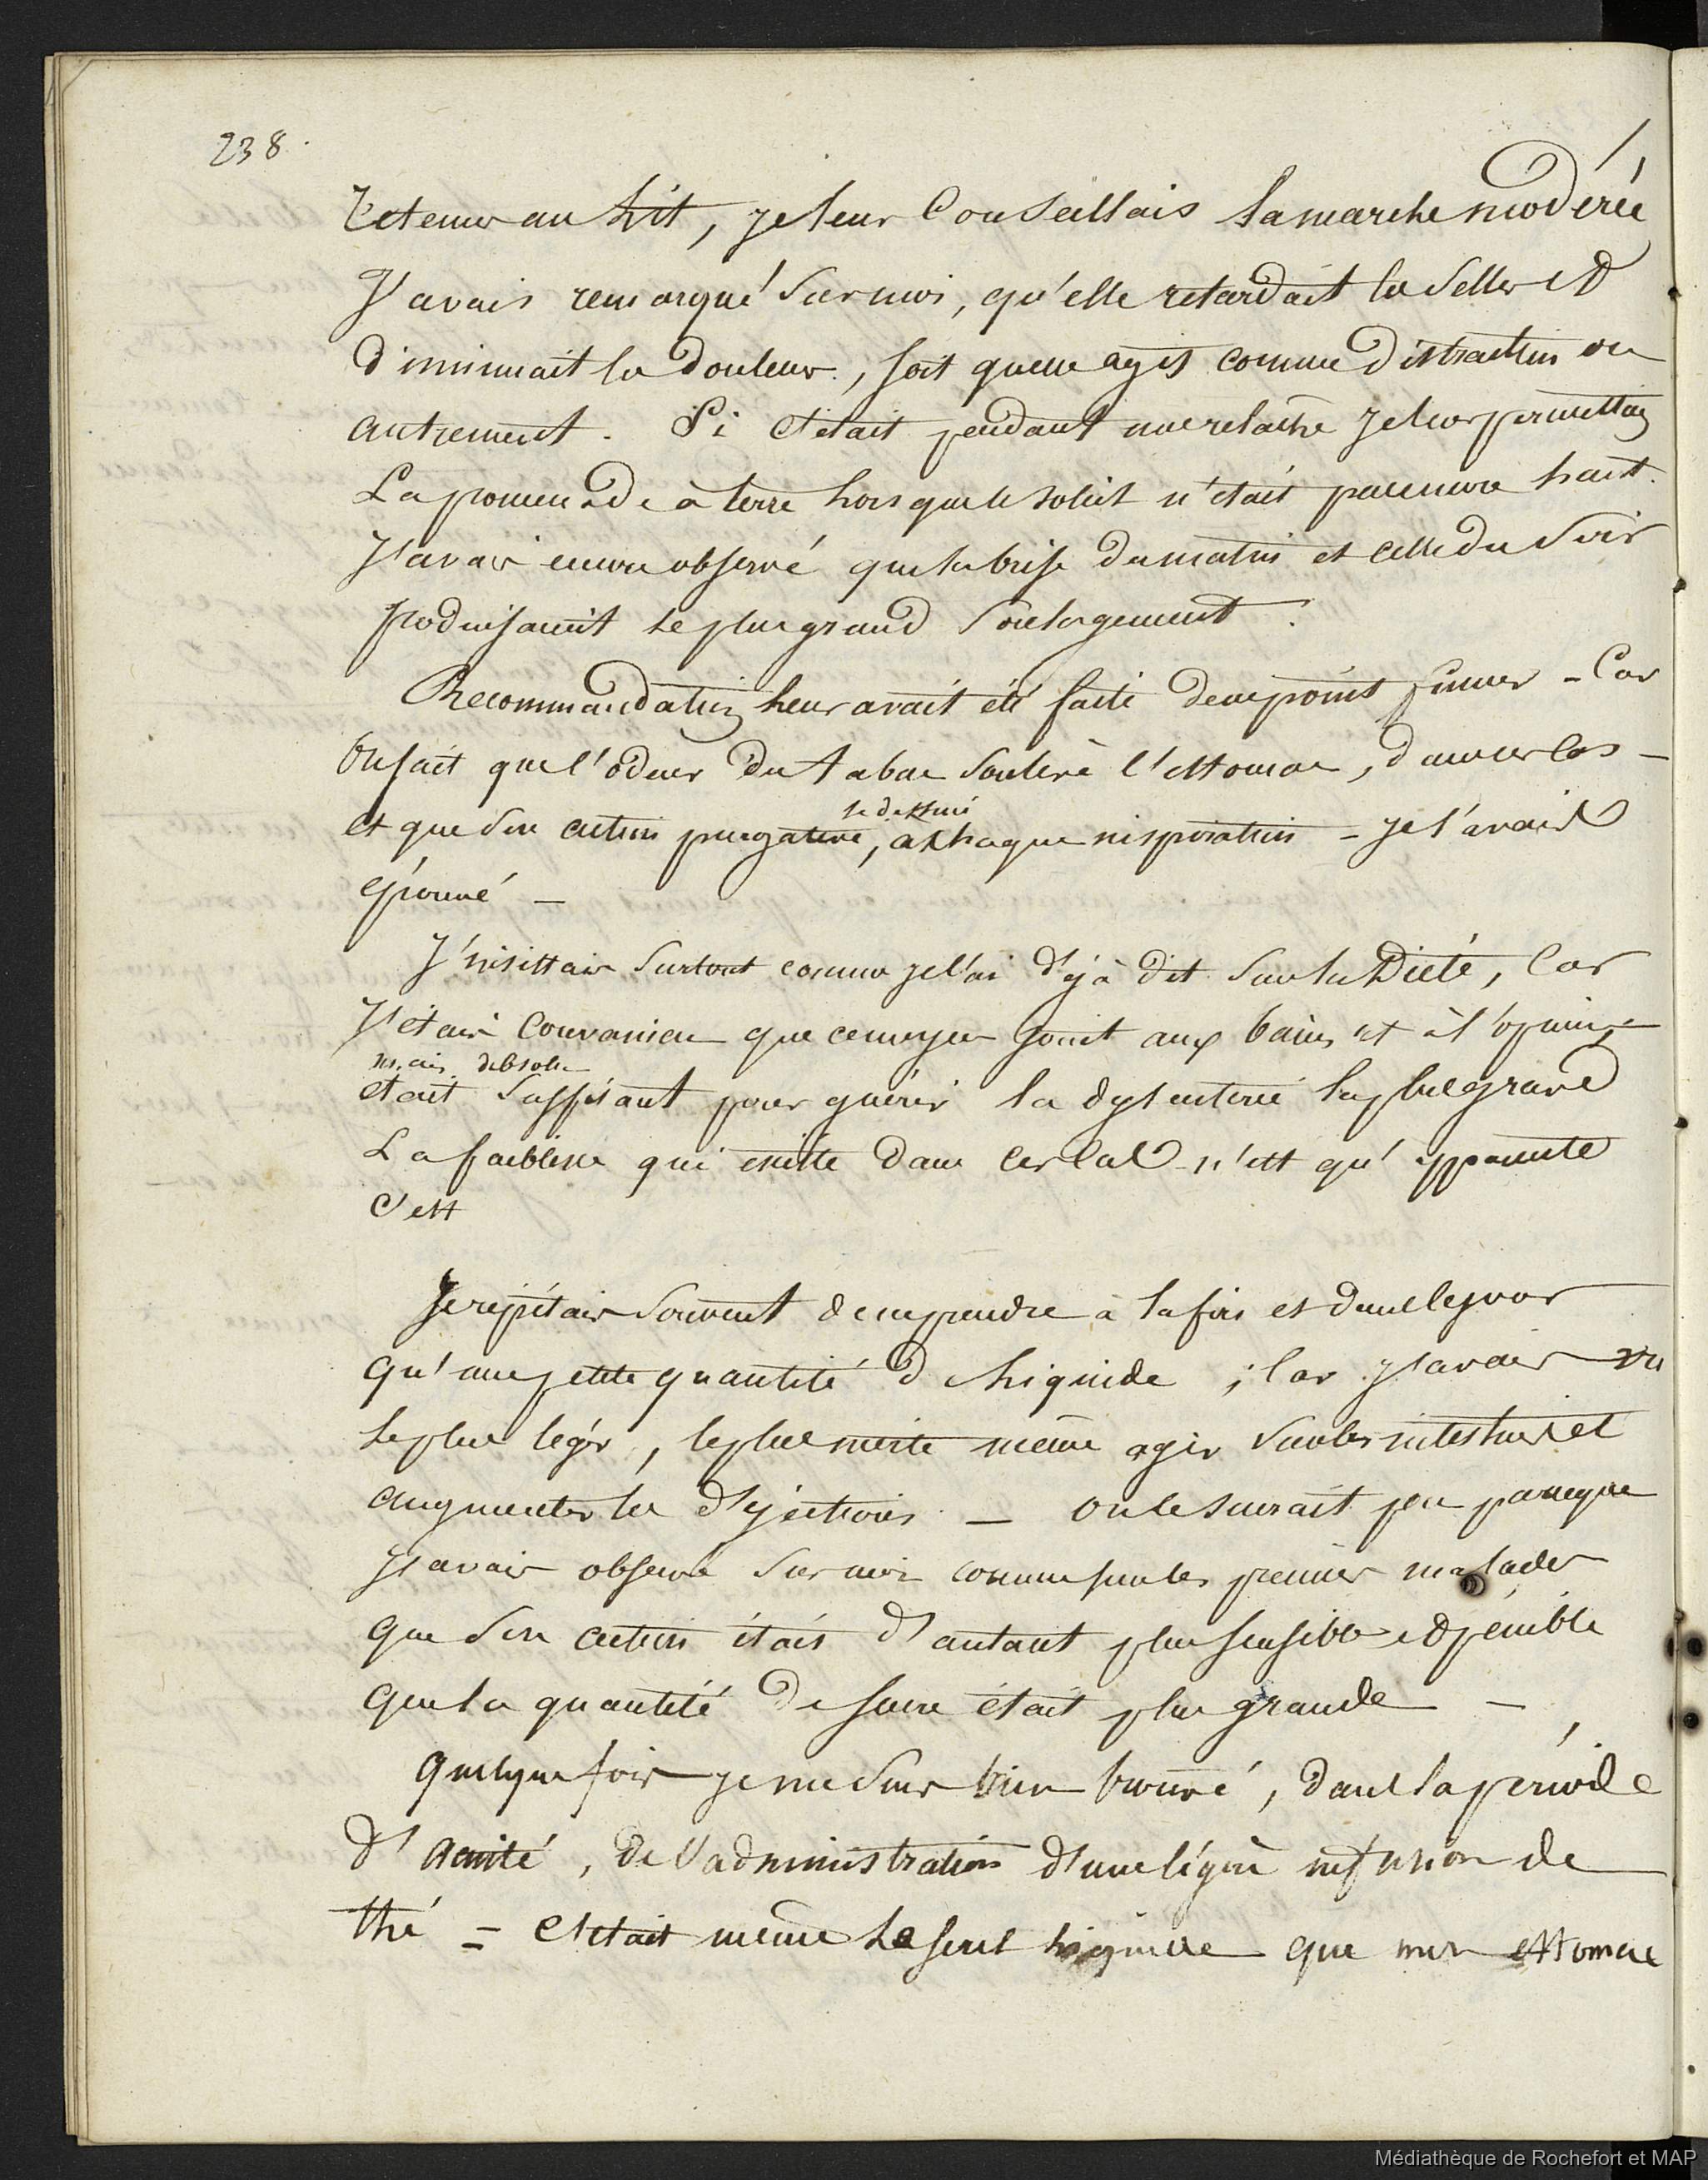 238.
retenus au lit, je leur Conseillais la marche modérée
J'avais remarqué sur moi, qu'elle retardait les selles et
diminuait les douleurs, soit quelle agit comme distraction ou
autrement. Si c'était pendant une relache je leur permettais
La promenade à terre lorsque le soleil n'était pas encore haut.
J'avais encore observé que la brise du matin et celle du soir
produisaient le plus grand soulagement.
Recommandation leur avait été faite de ne point fumer - Car
On sait que l'odeur du tabac soulève l'estomac, dans ces cas -
se dessine
et que son action purgative, a chaque inspiration - je l'avais
éprouvé -
J'insistais surtout comme je l'ai déjà dit sur la Diète, Car
J'étais Convaincu que ce moyen joint aux bains et à l'opium,
mais absolue
était suffisant pour guérir la dysenterie la plus grave
La faiblesse qui existe dans ces Cas n'est qu'apparente
C'est
Je répétais souvent de ne prendre à la fois et dans le jour
qu'une petite quantité de liquide ; Car j'avais vu
le plus léger, le plus inerte même agir sur les intestins et
augmenter les déjections - on le sucrait peu parceque
j'avais observé sur moi comme sur les premiers malades
que son action était d'autant plus sensible et pénible
que la quantité de sucre était plus grande -
Quelquefois je me suis bien trouvé, dans la période
d'acuité, de l'administration d'une légère infusion de
thé - c'était même le seul liquide que mon estomac
Médiathèque de Rochefort et MAP